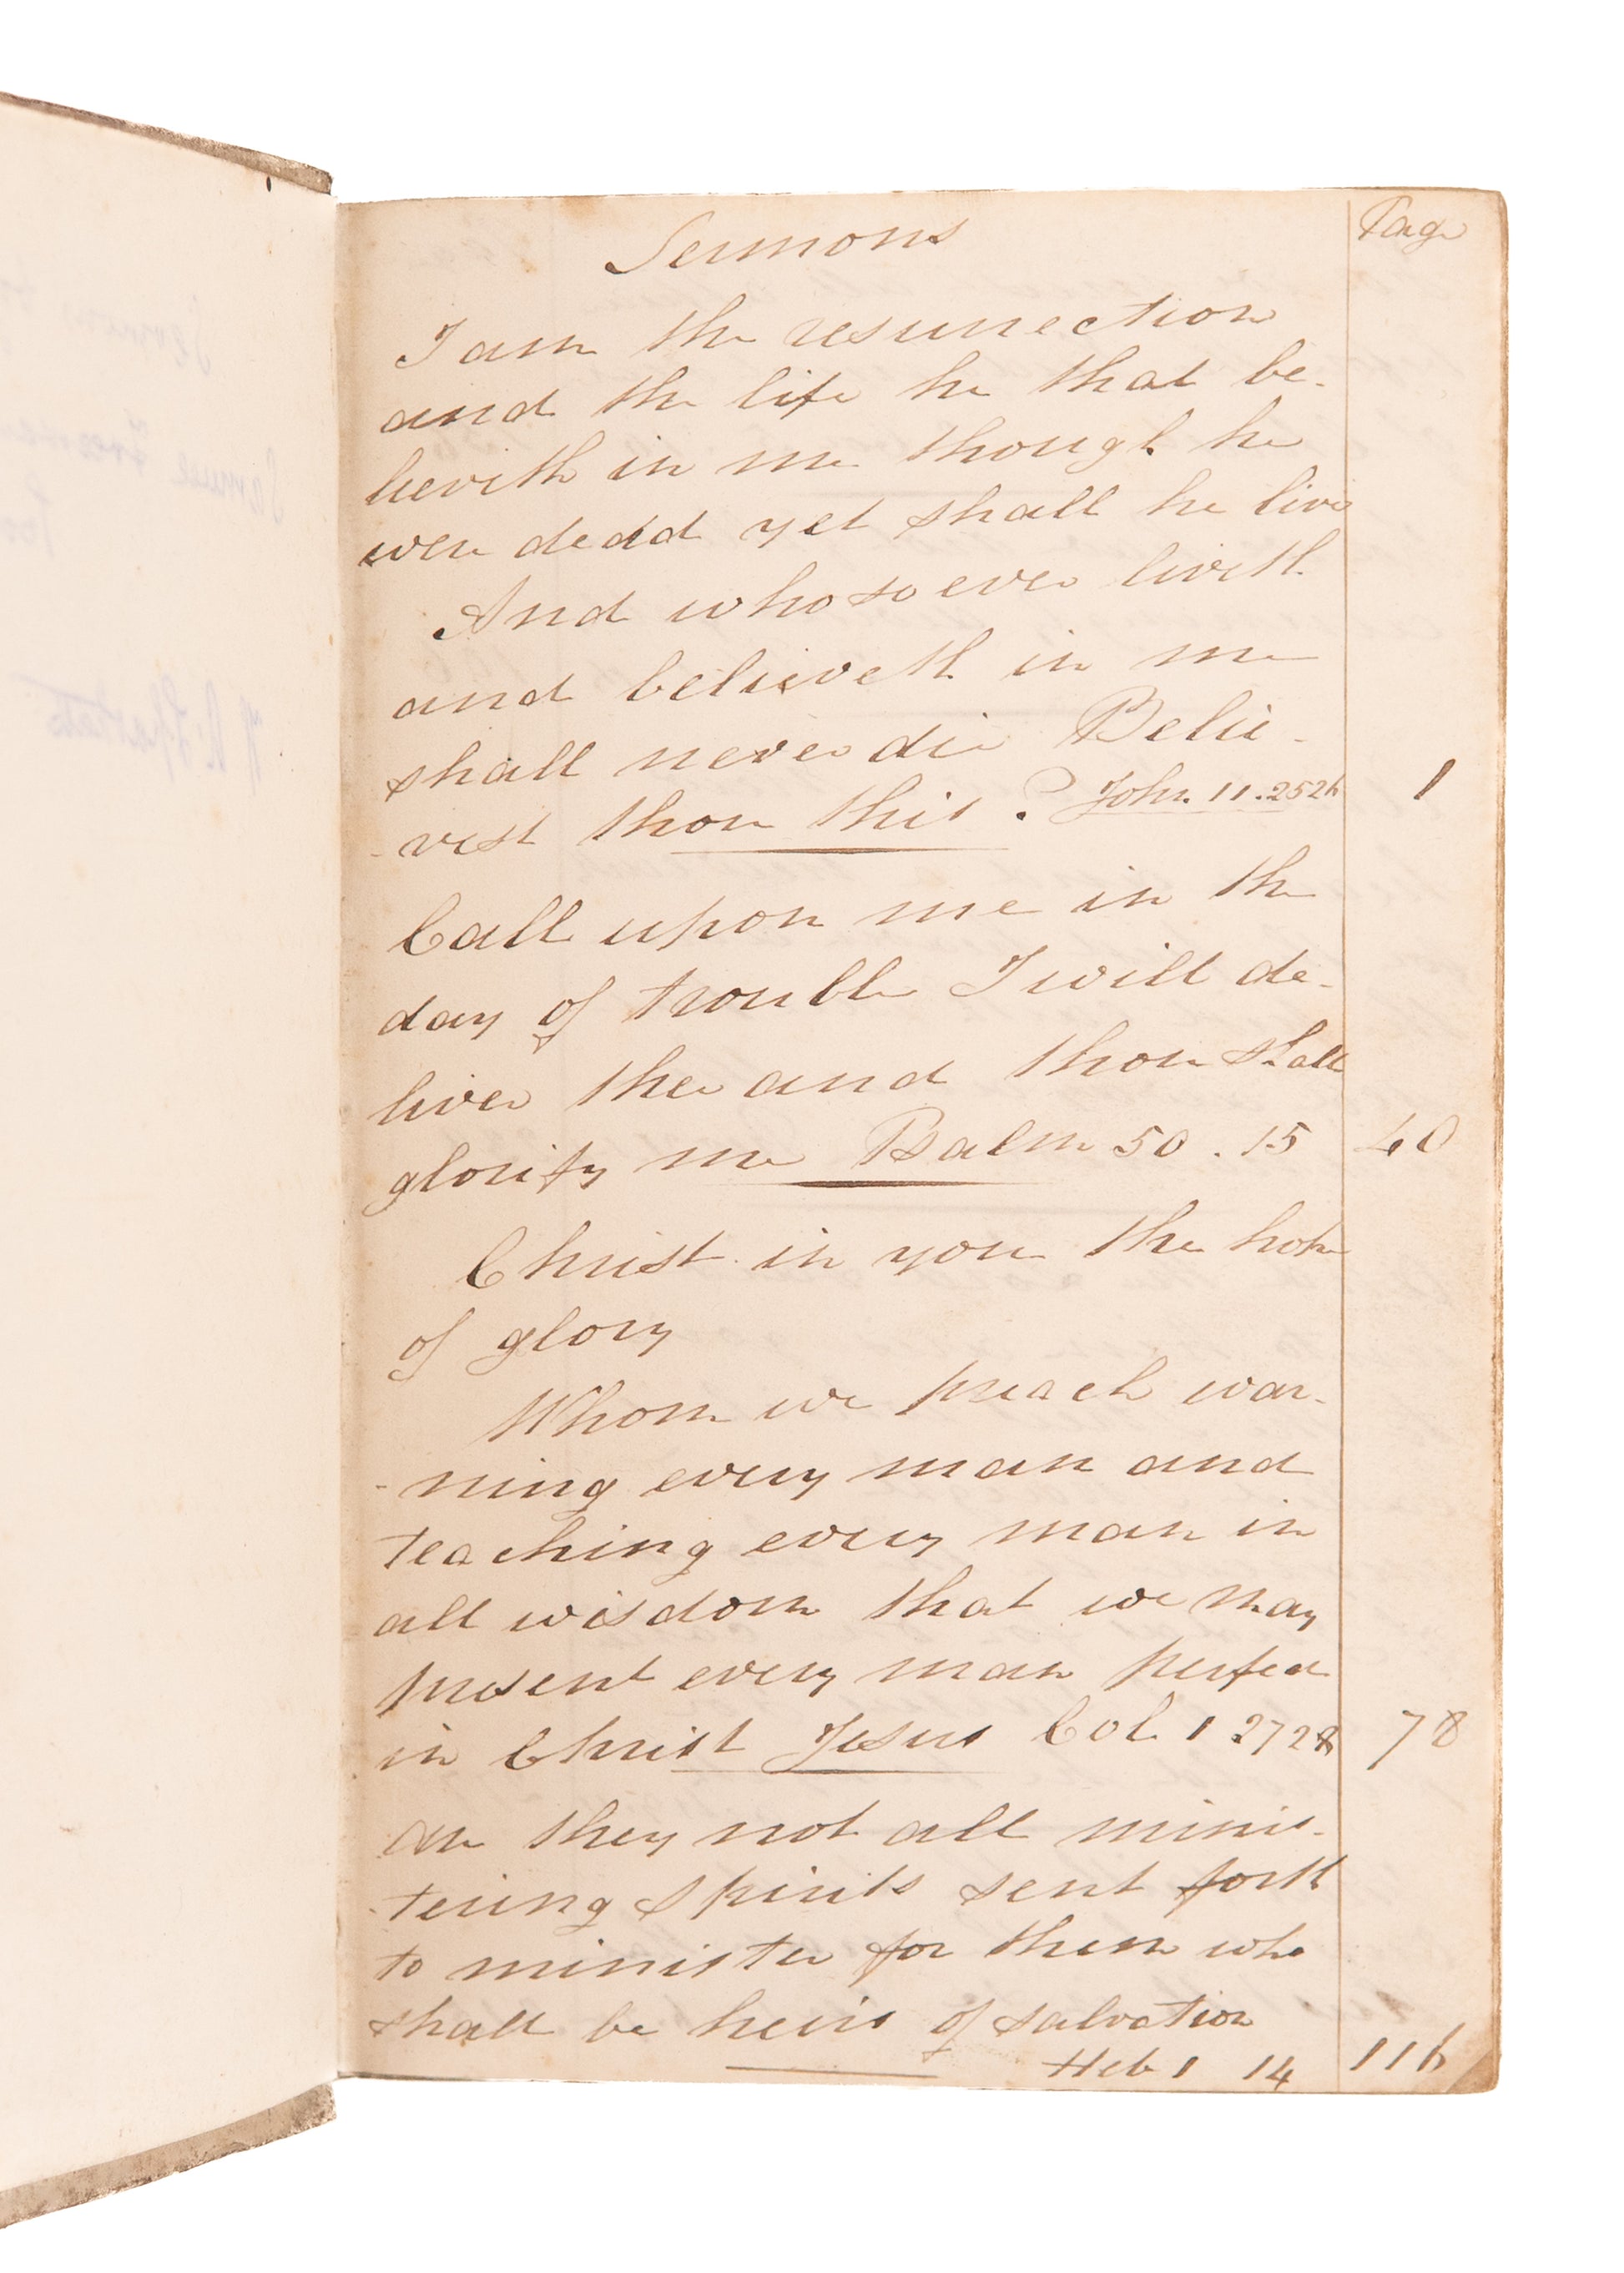 Sermons
Page
I am the resurrection
and the life he that be-
lieveth in me though he
were dead yet shall he live
And whosoever liveth
and believeth in me
shall never die Belie-
-vest thou this? John. 11.25 26
1
Call upon me in the
day of trouble I will de-
liver thee and thou shall
glorify me Psalm 50.15
40
Christ in you the hope
of glory
Whom we preach war-
-ning every man and
teaching every man in
all wisdom that we may
present every man perfect
in Christ Jesus Col. 1 27 28
78
Are they not all minis-
-tering spirits sent forth
to minister for them who
shall be heirs of salvation
Heb 1 14
116